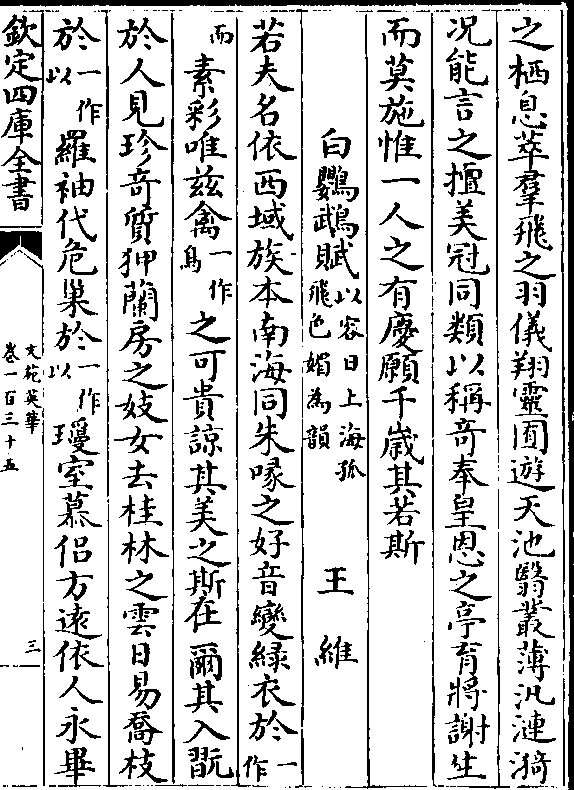 之栖息萃羣飛之羽儀翔靈囿遊天池翳叢薄汎漣漪
况能言之擅美冠同類以稱竒奉皇恩之亭育將謝生
而莫施惟一人之有慶願千歲其若斯
白鸚鵡賦以容日上海孤飛色媚為韻 王維
若夫名依西域族本南海同朱喙之好音變緑衣於一作
而素彩唯兹禽一作鳥之可貴諒其美之斯在爾其入翫
於人見珍竒質狎蘭房之妓女去桂林之雲日易喬枝
於一作以羅袖代危巢於一作以瓊室慕侣方遠依人永畢
欽定四庫全書
文苑英華
卷一百三十五
三